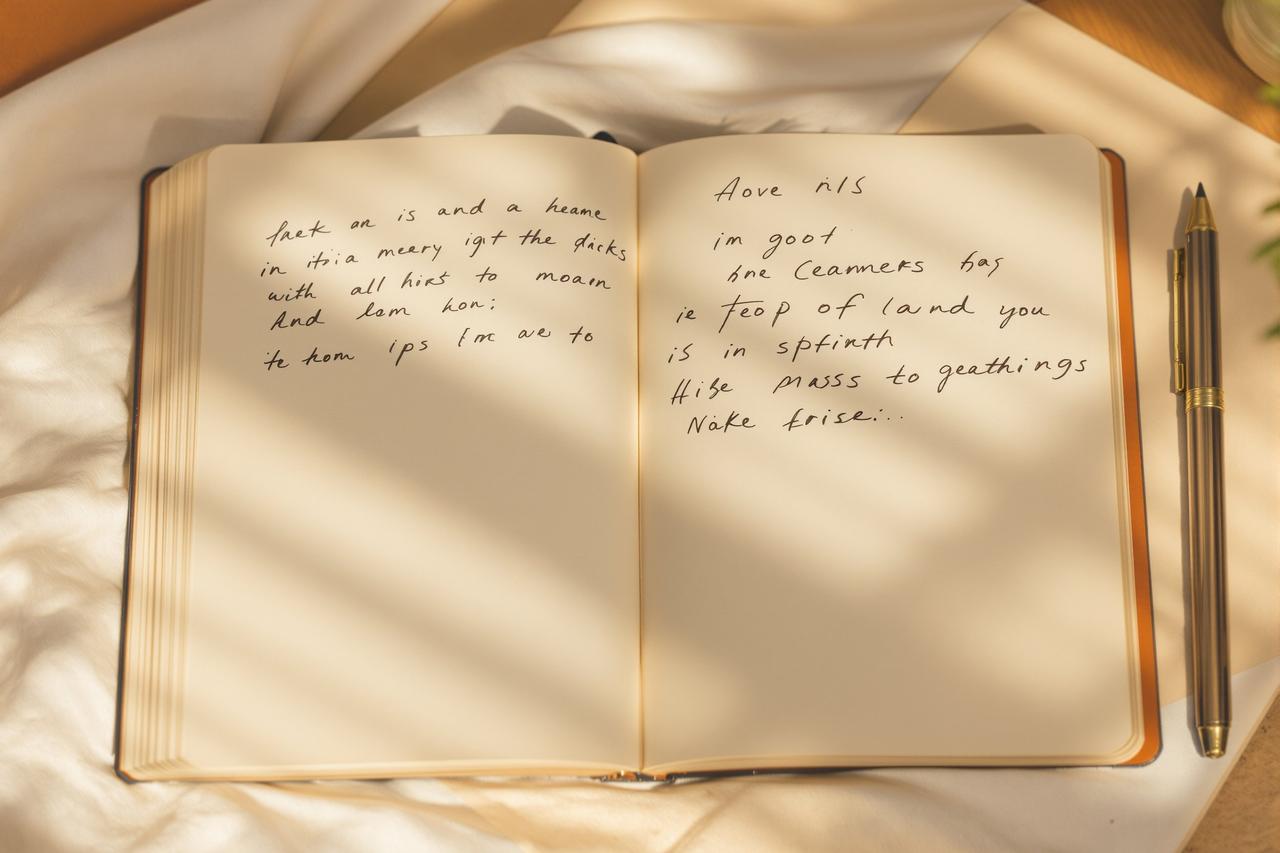 faek an is and a heame
in itria meery igit the dicks
with all hirs to moam
And lam hon:
te hom ips Im we to
Aove nIS
im goot
hne Ceanners hag
ie Feop of land you
is in spfinth
Hise masss to geathings
Nake frise:..